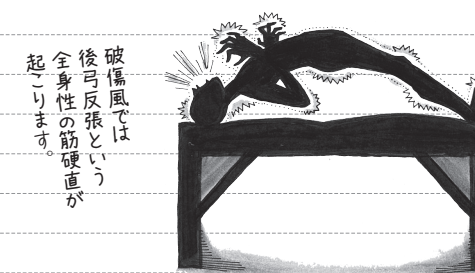 破傷風では
後弓反張という
全身性の筋硬直が
起こります。